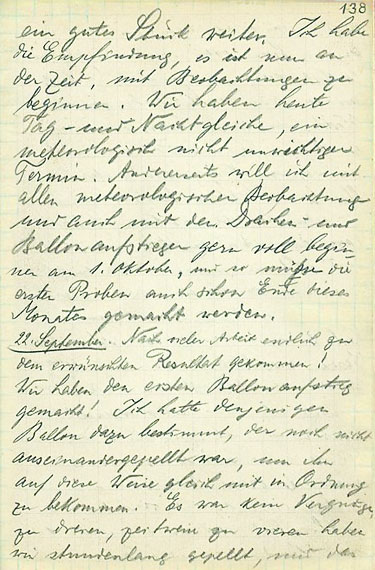 138
ein gutes Stück weiter. Ich habe
die Empfindung, es ist nun an
der Zeit, mit Beobachtungen zu
beginnen. Wir haben heute
Tag- und Nachtgleiche, ein
meteorologisch nicht unwichtiger
Termin. Andererseits will ich mit
allen meteorologischen Beobachtung
und auch mit den Drachen- und
Ballonaufstiegen gern voll begin-
nen am 1. Oktober, und so müssen die
ersten Proben auch schon Ende dieses
Monates gemacht werden.
22. September. Nach vieler Arbeit endlich zu
dem erwünschten Resultat gekommen!
Wir haben den ersten Ballonaufstieg
gemacht! Ich hatte denjenigen
Ballon dazu bestimmt, der noch nicht
auseinandergepellt war, um ihn
auf diese Weise gleich mit in Ordnung
zu bekommen. Es war kein Vergnügen,
zu dreien, zeitweise zu vieren haben
wir stundenlang gepellt, und das